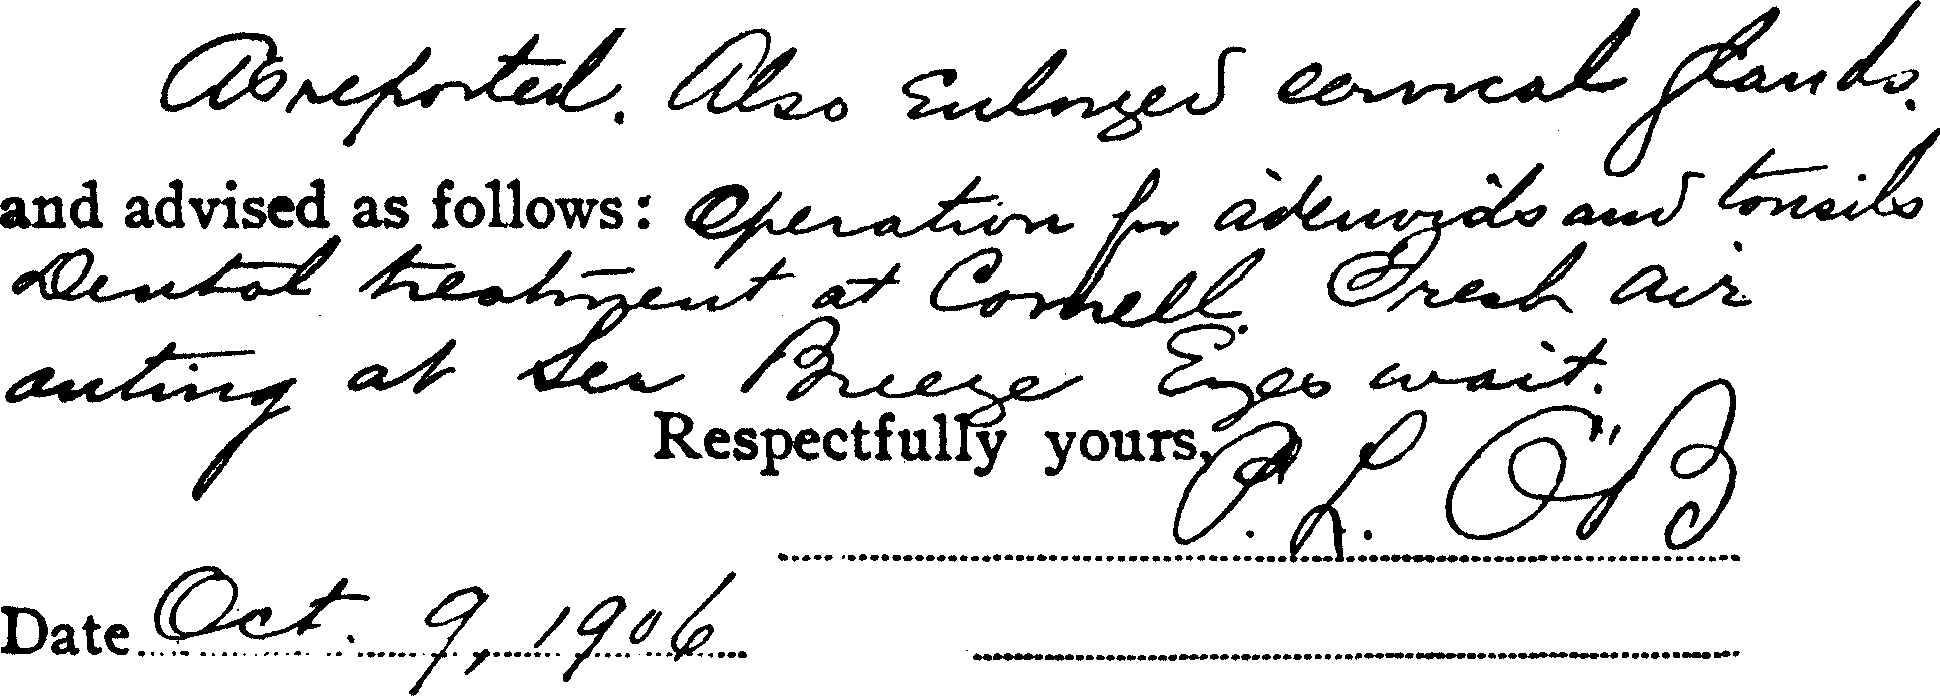 As reported. Also Enlarged cervical glands.
and advised as follows: Operation for adenoids and tonsils
Dental treatment at Cornell. Fresh air
outing at Sea Breeze Eyes wait.
Respectfully yours,
P. L. O'B
Date Oct. 9, 1906